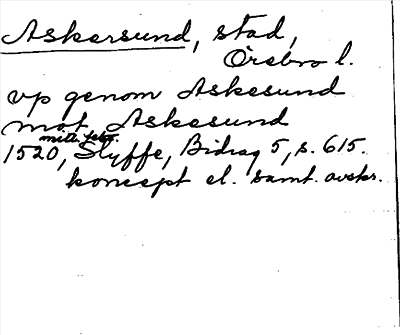 Askersund, stad,
Örebro l.
vp genom Askesund
mot Askesund
mitt. febr.
1520, Styffe, Bidrag 5, s. 615.
koncept el. samt. avskr.